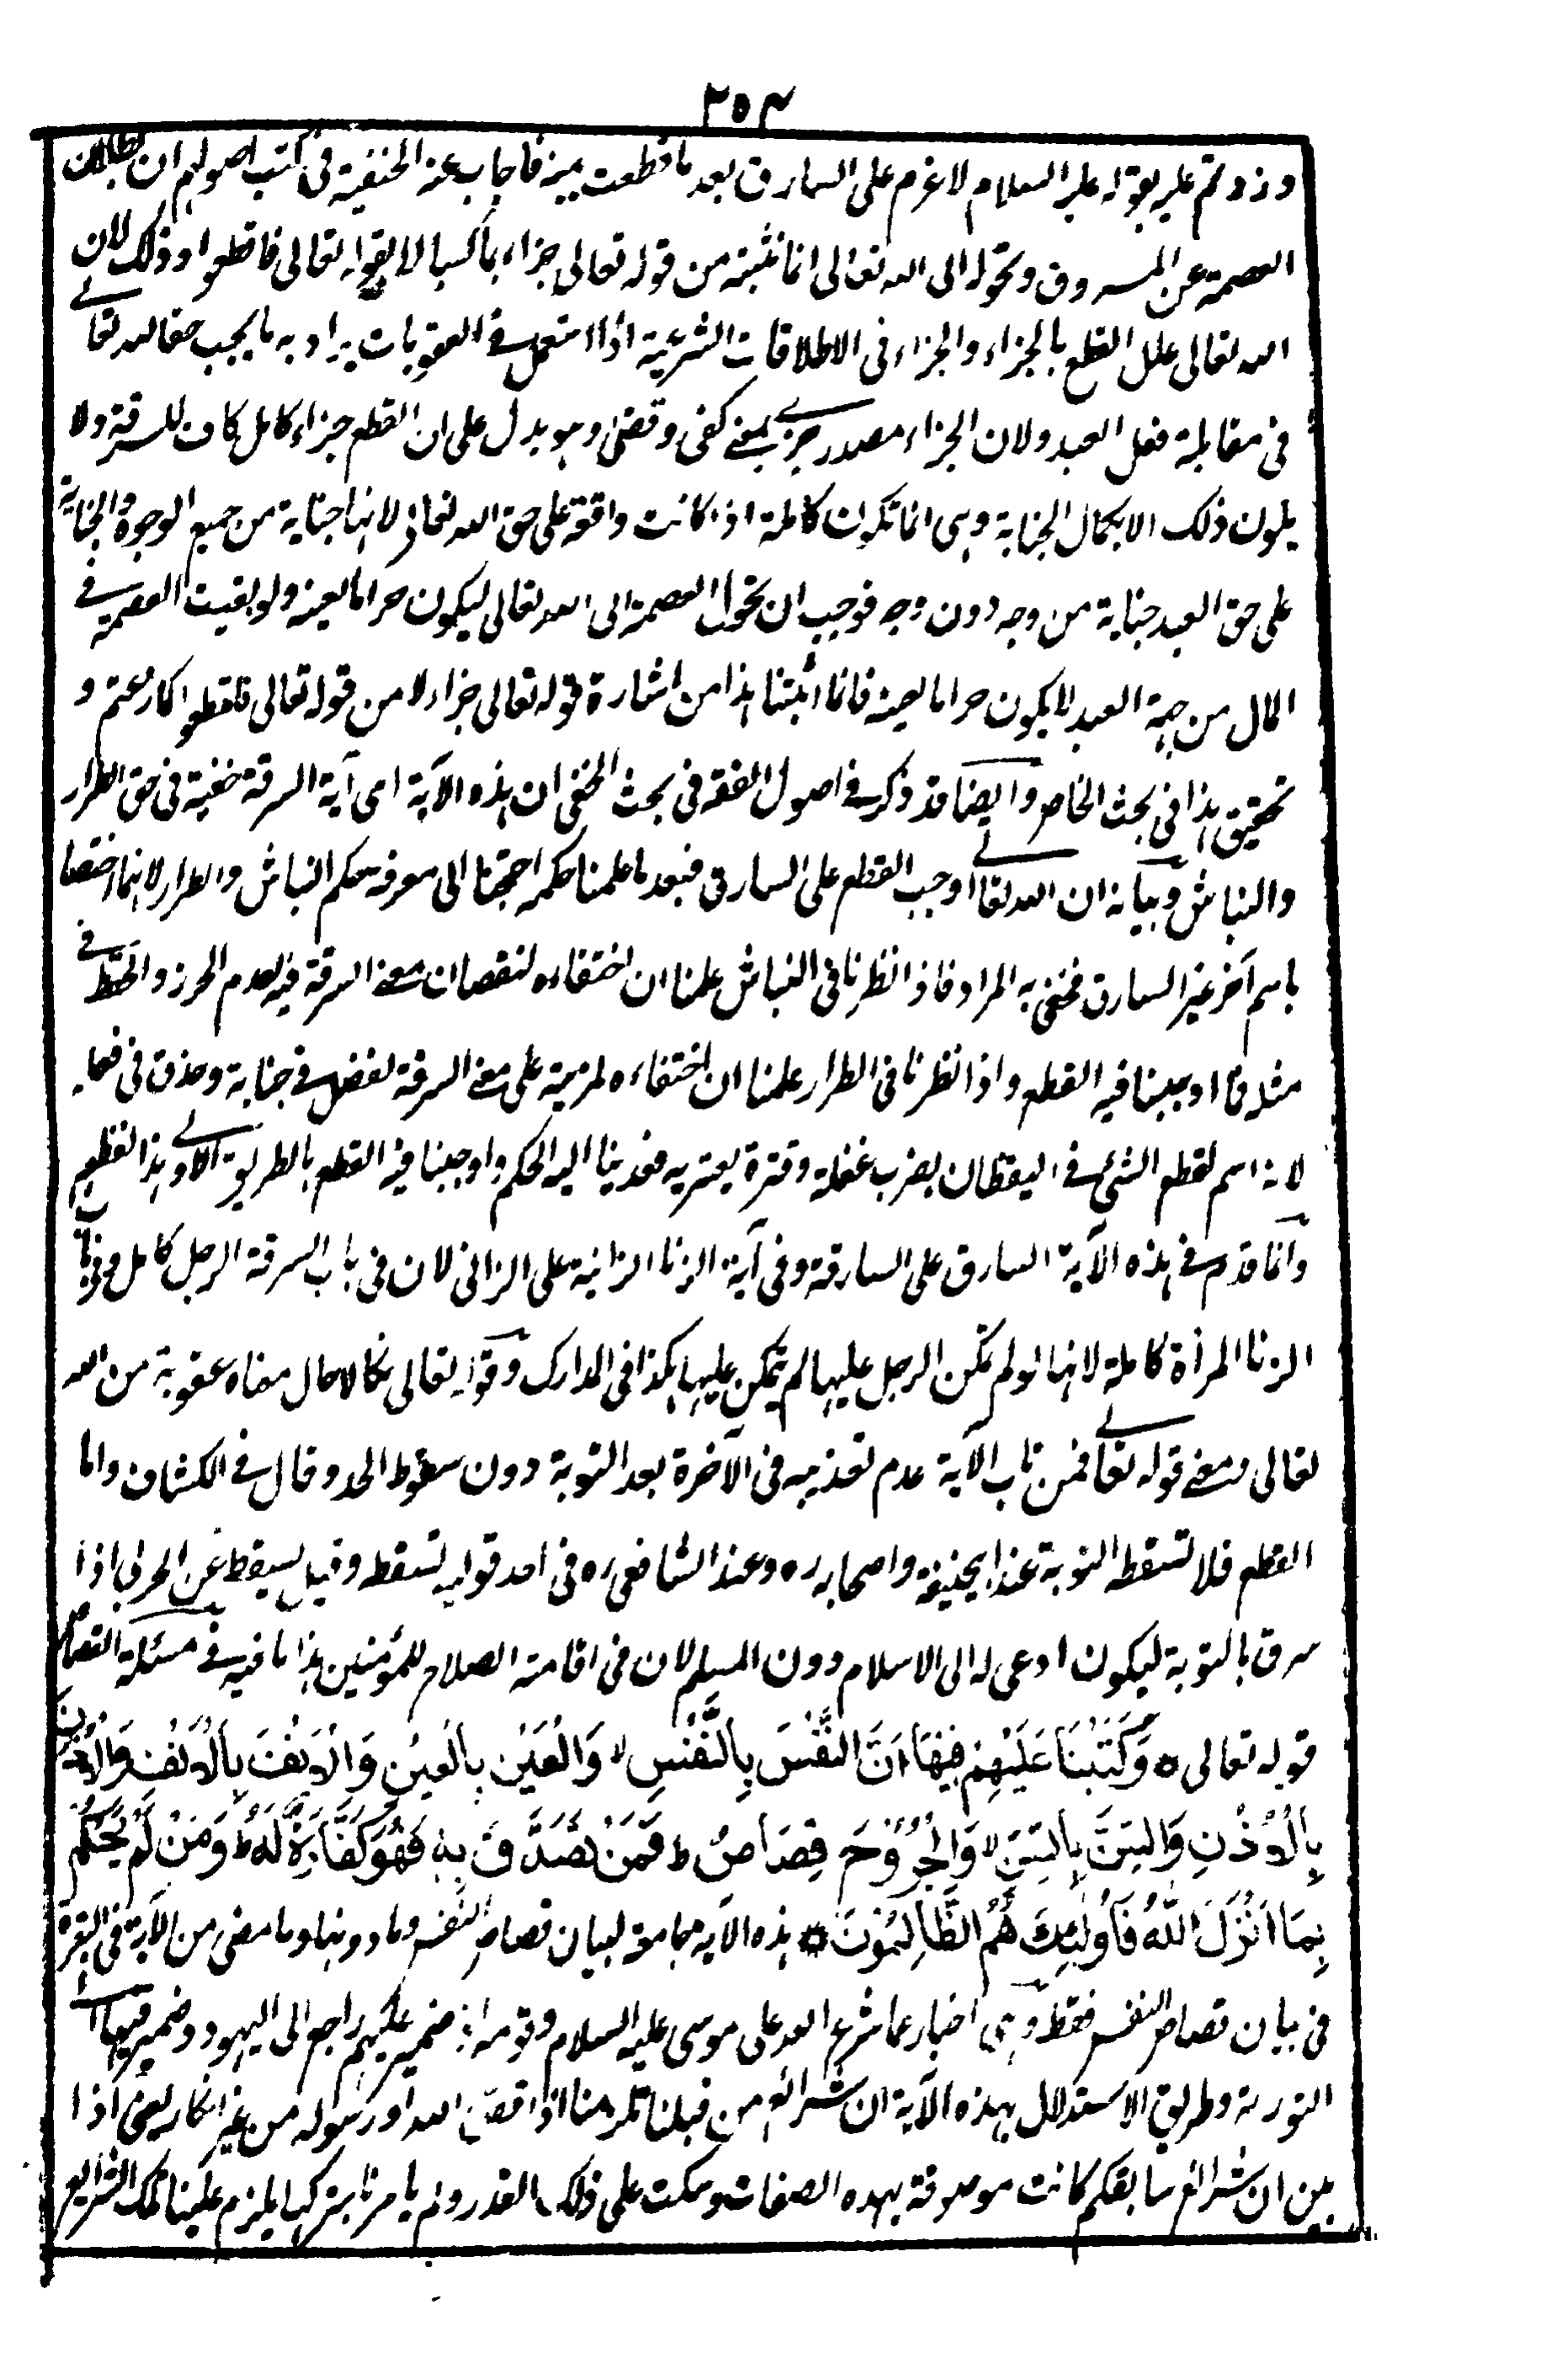 ٣٥٤
وزدتم عليه بقوله عليه السلام لا غرم على السارق بعد ما قطعت يمينه فاجاب عنه الحنفية فى كتب اصولهم ان بطلان
العصمة عن المسروق وتحوله الى الله تعالى انما نثبته من قوله تعالى جزاء بما كسبا لا بقوله تعالى فاقطعوا وذلك لان
الله تعالى علل القطع بالجزاء والجزاء فى الاطلاقات الشرعية اذا استعمل فى العقوبات يراد به ما يجب حقا لله تعالى
فى مقابلة فعل العبد ولان الجزاء مصدر جزى بمعنى كفى وقضى وهو يدل على ان القطع جزاء كامل كاف للسرقة ولا
يكون ذلك الا بكمال الجناية وهى انما تكون كاملة اذا كانت واقعة على حق الله تعالى لانها جناية من جميع الوجوه والجناية
على حق العبد جناية من وجه دون وجه فوجب ان تحول العصمة الى الله تعالى ليكون حراما لعينه ولو بقيت العصمة فى
المال من جهة العبد لا يكون حراما لعينه فانما اثبتنا هذا من اشارة قوله تعالى جزاء لا من قوله تعالى فاقطعوا كما زعمتم و
تحقيق هذا فى بحث الخاص وايضا قد ذكر فى اصول الفقه فى بحث الخفى ان هذه الآية اى آية السرقة خفية فى حق الطرار
والنباش وبيانه ان الله تعالى اوجب القطع على السارق فبعد ما علمنا حكمه احتجنا الى معرفة حكم النباش والطرار لانهما اختصا
باسم آخر غير السارق فخفى به المراد فاذا نظرنا فى النباش علمنا ان اختفاءه لنقصان معنى السرقة فيه لعدم الحرز والحفظ فى
مثله فما اوجبنا فيه القطع واذا نظرنا فى الطرار علمنا ان اختفاءه لمزية على معنى السرقة لفضل فى جناية وحذق فى فعله
لانه اسم لقطع الشئ فى اليقظان بضرب غفلة وفترة يعتريه فعدينا اليه الحكم واوجبنا فيه القطع بالطريق الاولى هذا لفظهم
وانما قدم فى هذه الآية السارق على السارقة وفى آية الزنا الزانية على الزانى لان فى باب السرقة الرجل كامل وفى باب
الزنا المرأة كاملة لانها لو لم تمكن الرجل عليها لم يتمكن عليها هكذا فى المدارك وقوله تعالى نكالا حال معناه عقوبة من الله
تعالى ومعنى قوله تعالى فمن تاب الآية عدم تعذيبه فى الآخرة بعد التوبة دون سقوط الحد وقال فى الكشاف واما
القطع فلا تسقطه التوبة عند ابى حنيفة واصحابه ره وعند الشافعى ره فى احد قوليه تسقطه وقيل يسقط عن الحربى اذا
سرق بالتوبة ليكون ادعى له الى الاسلام دون المسلم لان فى اقامته الصلاح للمؤمنين هذا ما فيه فى مسئلة القصاص
قوله تعالى ۞ وَكَتَبْنَا عَلَيْهِمْ فِيهَا اَنَّ النَّفْسَ بِالنَّفْسِ لا وَالْعَيْنَ بِالْعَيْنِ وَالْاَنْفَ بِالْاَنْفِ وَالْاُذُنَ
بِالْاُذُنِ وَالسِّنَّ بِالسِّنِّ لا وَالْجُرُوْحَ قِصَاصٌ ط فَمَنْ تَصَدَّقَ بِهٖ فَهُوَ كَفَّارَةٌ لَّهٗ ط وَمَنْ لَّمْ يَحْكُمْ
بِمَا اَنْزَلَ اللّٰهُ فَاُولٰئِكَ هُمُ الظَّالِمُوْنَ ۞ هذه الآية جامعة لبيان قصاص النفس وما دونها وما مضى من الآية فى البقرة
فى بيان قصاص النفس فقط وهى اخبار عما شرع الله على موسى عليه السلام وقومه اذ ضمير عليهم راجع الى اليهود وضمير فيها الى
التورىة وطريق الاستدلال بهذه الآية ان شرائع من قبلنا تلزمنا اذا قص الله او رسوله من غير انكار يعنى اذا
بين ان شرائع سابقكم كانت موصوفة بهذه الصفات وسكت على ذلك القدر ولم يامرنا بتركها يلزم علينا تلك الشرايع